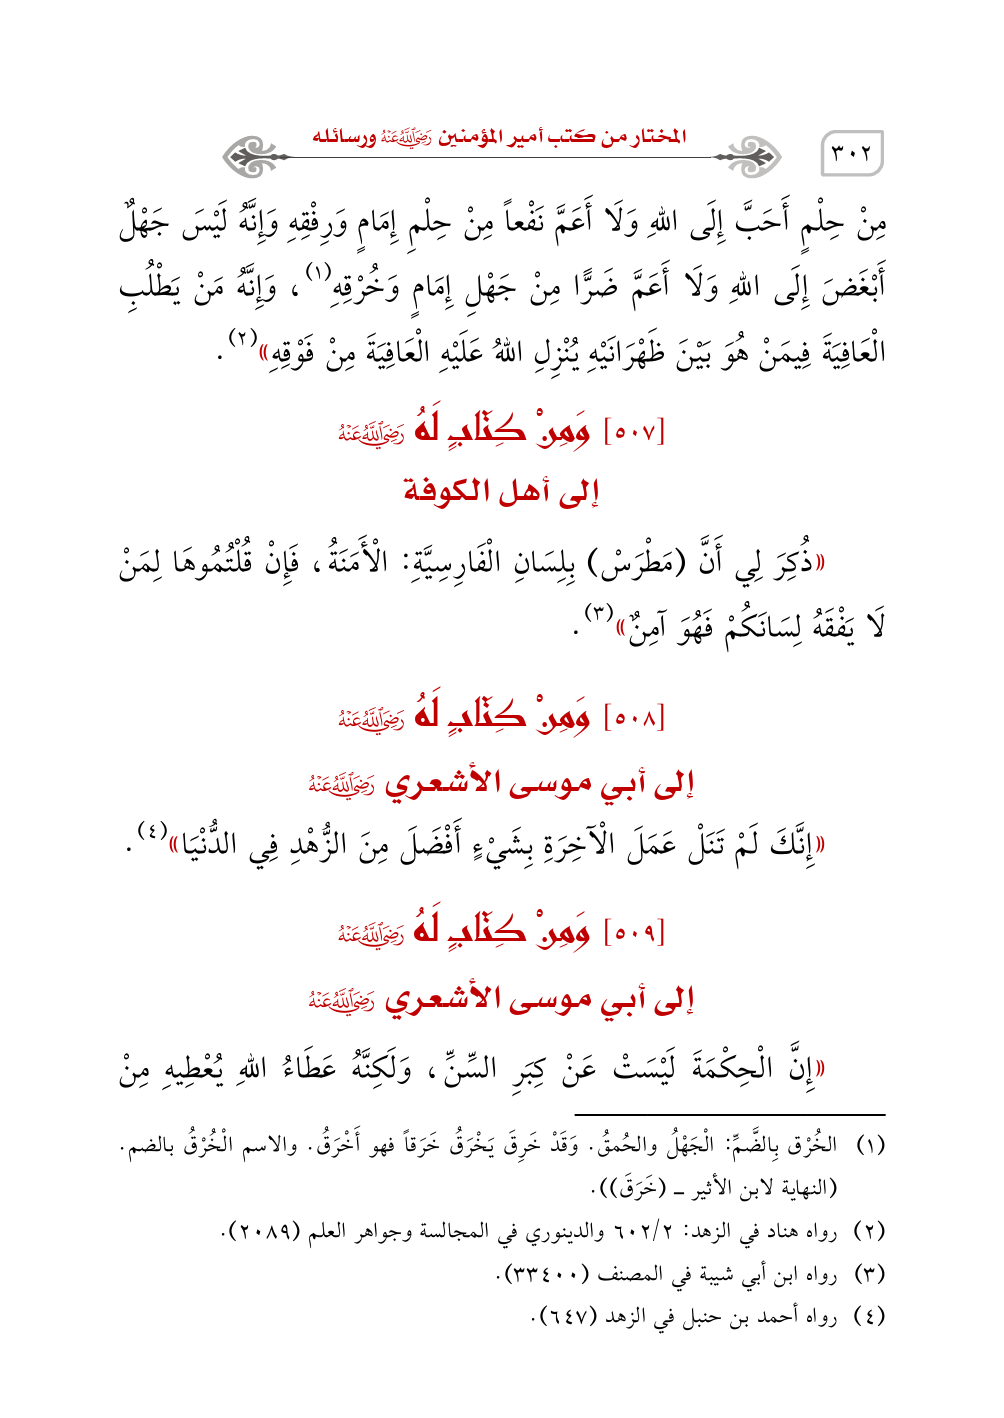 ٣٠٢
المختار من كتب أمير المؤمنين رَضِيَ اللَّهُ عَنْهُ ورسائله
مِنْ حِلْمٍ أَحَبَّ إِلَى اللهِ وَلَا أَعَمَّ نَفْعاً مِنْ حِلْمِ إِمَامٍ وَرِفْقِهِ وَإِنَّهُ لَيْسَ جَهْلٌ
أَبْغَضَ إِلَى اللهِ وَلَا أَعَمَّ ضَرًّا مِنْ جَهْلِ إِمَامٍ وَخُرْقِهِ(١)، وَإِنَّهُ مَنْ يَطْلُبِ
الْعَافِيَةَ فِيمَنْ هُوَ بَيْنَ ظَهْرَانَيْهِ يُنْزِلِ اللهُ عَلَيْهِ الْعَافِيَةَ مِنْ فَوْقِهِ»(٢).
[٥٠٧] وَمِنْ كِتَابٍ لَهُ رَضِيَ اللَّهُ عَنْهُ
إلى أهل الكوفة
«ذُكِرَ لِي أَنَّ (مَطْرَسْ) بِلِسَانِ الْفَارِسِيَّةِ: الْأَمَنَةُ، فَإِنْ قُلْتُمُوهَا لِمَنْ
لَا يَفْقَهُ لِسَانَكُمْ فَهُوَ آمِنٌ»(٣).
[٥٠٨] وَمِنْ كِتَابٍ لَهُ رَضِيَ اللَّهُ عَنْهُ
إلى أبي موسى الأشعري رَضِيَ اللَّهُ عَنْهُ
«إِنَّكَ لَمْ تَنَلْ عَمَلَ الْآخِرَةِ بِشَيْءٍ أَفْضَلَ مِنَ الزُّهْدِ فِي الدُّنْيَا»(٤).
[٥٠٩] وَمِنْ كِتَابٍ لَهُ رَضِيَ اللَّهُ عَنْهُ
إلى أبي موسى الأشعري رَضِيَ اللَّهُ عَنْهُ
«إِنَّ الْحِكْمَةَ لَيْسَتْ عَنْ كِبَرِ السِّنِّ، وَلَكِنَّهُ عَطَاءُ اللهِ يُعْطِيهِ مِنْ
(١) الخُرْق بِالضَّمِّ: الْجَهْلُ والحُمقُ. وَقَدْ خَرِقَ يَخْرَقُ خَرَقاً فهو أَخْرَقُ. والاسم الْخُرْقُ بالضم.
(النهاية لابن الأثير ــ (خَرَقَ)).
(٢) رواه هناد في الزهد: ٦٠٢/٢ والدينوري في المجالسة وجواهر العلم (٢٠٨٩).
(٣) رواه ابن أبي شيبة في المصنف (٣٣٤٠٠).
(٤) رواه أحمد بن حنبل في الزهد (٦٤٧).